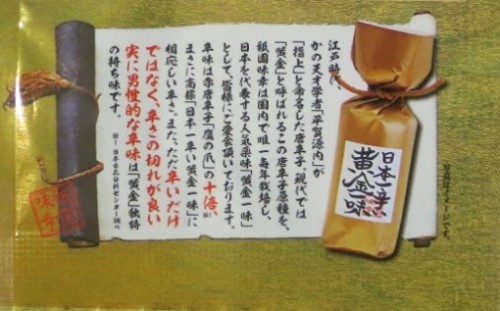 江戸時代、
かの天才学者「平賀源内」が
「指上」と命名した唐辛子、現代では
「黄金」と呼ばれるこの唐辛子原種を、
祇園味幸は国内で唯一毎年栽培し、
日本を代表する人気薬味「黄金一味」
として、皆様にご愛食頂いております。
辛味は赤唐辛子「鷹の爪」の十倍、
まさに高級「日本一辛い黄金一味」に
相応しい辛さ。また、ただ辛いだけ
ではなく、辛さの切れが良い
実に男性的な辛味は「黄金」独特
の持ち味です。
日本一辛い
黄金一味
写真はイメージです。